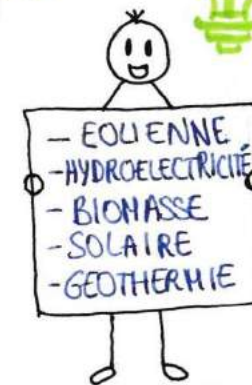 - EOLIENNE
- HYDROELECTRICITÉ
- BIOMASSE
- SOLAIRE
- GEOTHERMIE